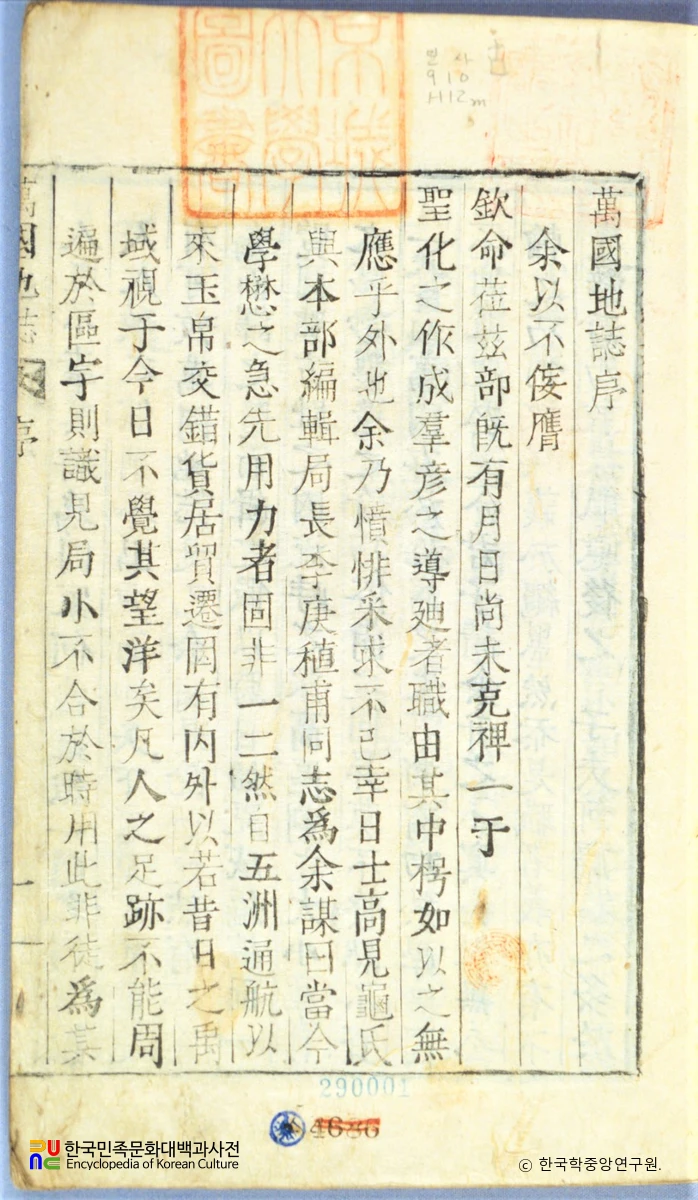 京城
大學
圖書
910
H12m
萬國地誌序
余以不侫膺
欽命莅玆部旣有月日尚未克裨一于
聖化之作成羣彦之導廸者職由其中樗如以之無
應乎外也余乃憤悱釆求不已幸日士高見龜氏
與本部編輯局長李庚稙甫同志爲余謀曰當今
學懋之急先用力者固非一二然自五洲通航以
來玉帛交錯貨居貿遷罔有內外以若昔日之禹
域視于今日不覺其望洋矣凡人之足跡不能周
遍於區宇則識見局小不合於時用此非徒爲其
萬國地誌 序 一
290001
4686
한국민족문화대백과사전
Encyclopedia of Korean Culture
ⓒ 한국학중앙연구원.